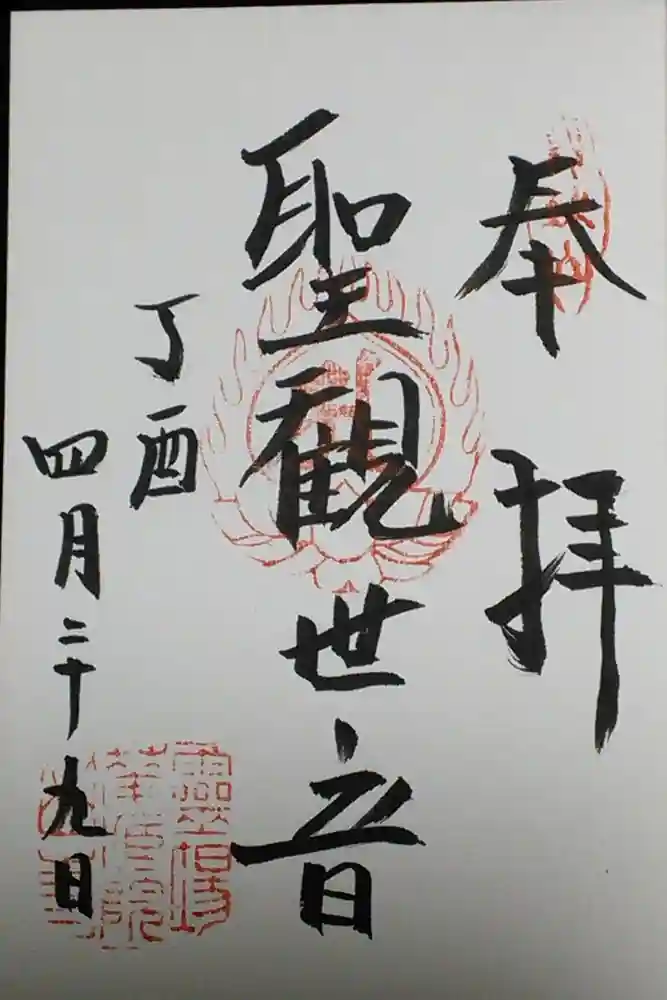 奉拝
聖觀世音
丁酉
四月二十九日